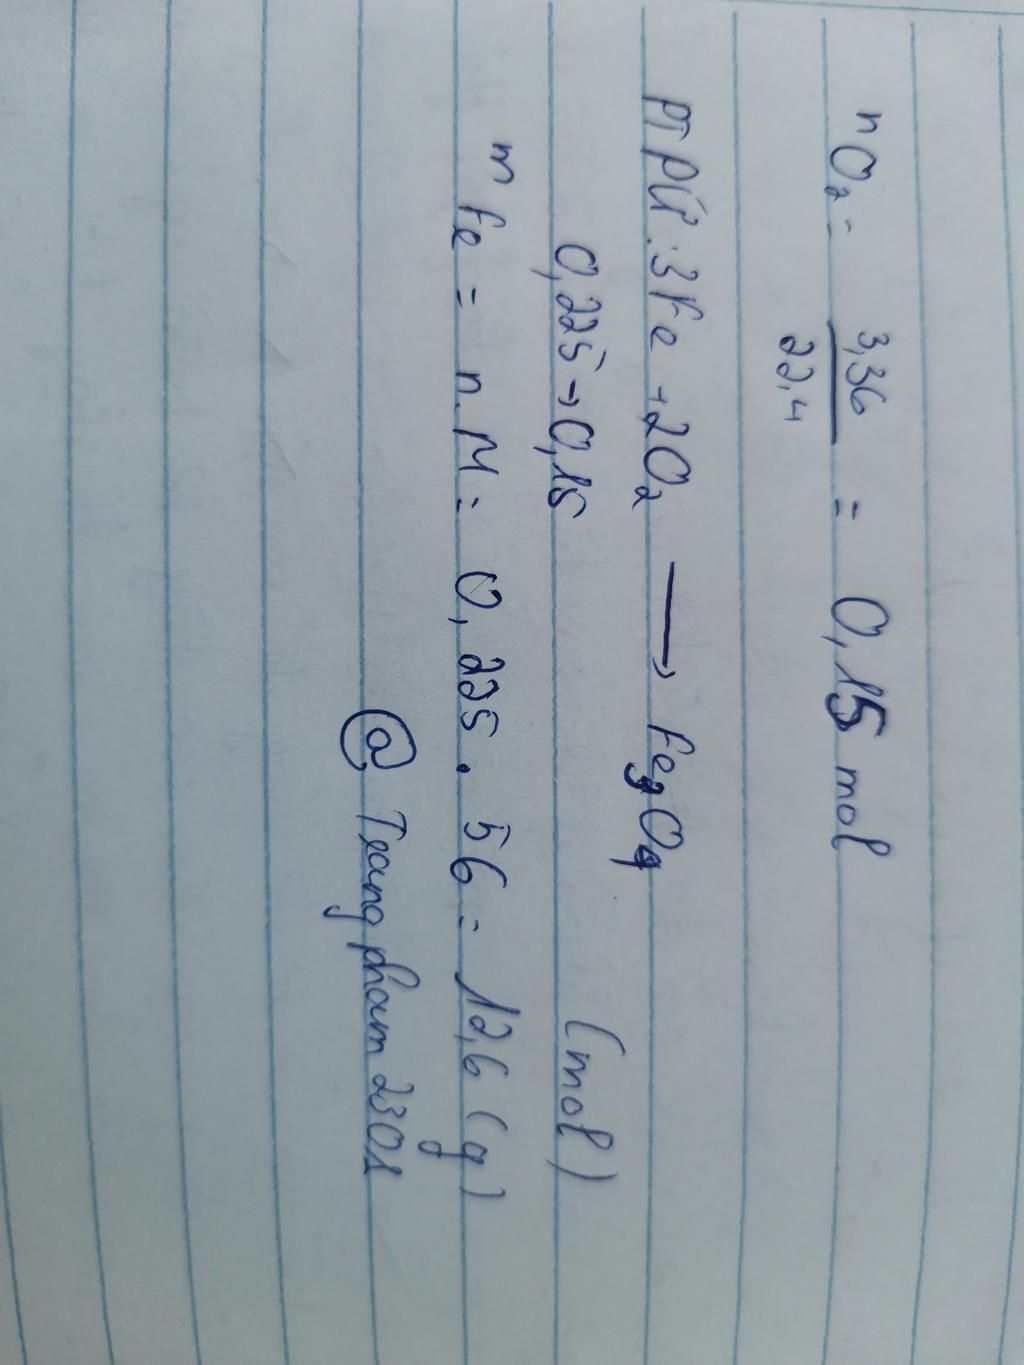 nO₂ = 3,36/22,4 = 0,15 mol
PTPƯ: 3Fe + 2O₂ → Fe₃O₄
0,225 → 0,15 (mol)
mFe = n.M = 0,225 . 56 = 12,6 (g)
@ Trangpham2301